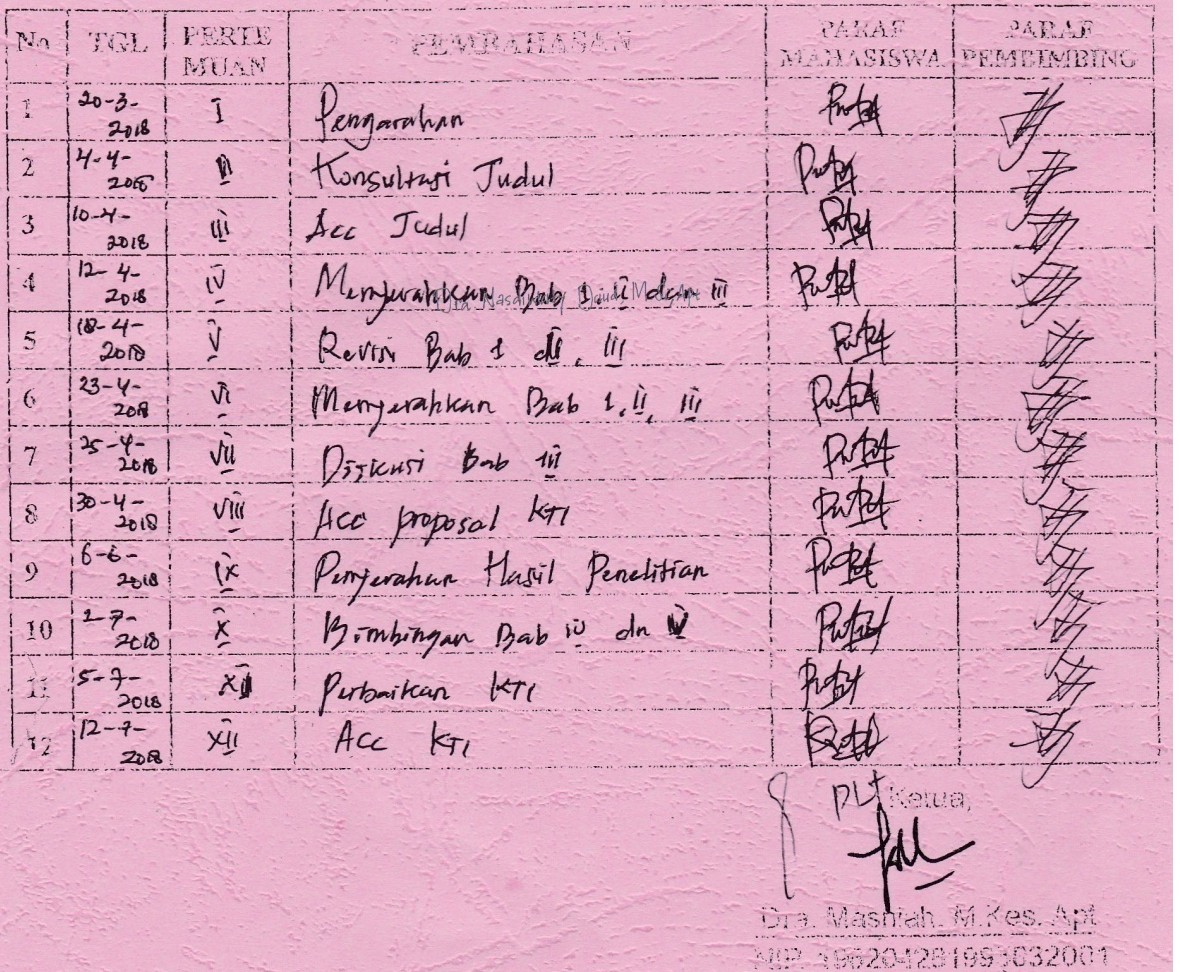 No TGL PERTE MUAN PEMBAHASAN PARAF MAHASISWA PARAF PEMBIMBING
1 20-3-2018 I Pengarahan
2 4-4-2018 II Konsultasi Judul
3 10-4-2018 III Acc Judul
4 12-4-2018 IV Menyerahkan Bab 1 II dan III
5 18-4-2018 V Revisi Bab 1 II, III
6 23-4-2018 VI Menyerahkan Bab 1, II, III
7 25-4-2018 VII Diskusi Bab III
8 30-4-2018 VIII Acc proposal KTI
9 6-6-2018 IX Penyerahan Hasil Penelitian
10 2-7-2018 X Bimbingan Bab IV dn V
11 5-7-2018 XI Perbaikan KTI
12 12-7-2018 XII Acc KTI
PLt Ketua,
Dra. Masniah, M.Kes. Apt
NIP. 196204281995032001